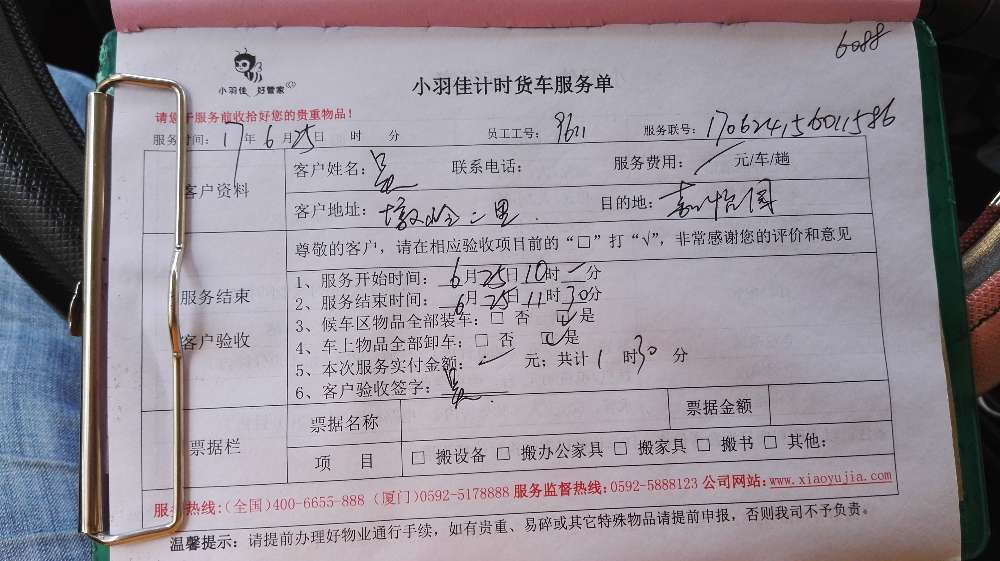 6088
小羽佳 好管家
小羽佳计时货车服务单
请您于服务前收拾好您的贵重物品!
服务时间: 17年 6月 25日 时 分 员工工号: 9611 服务联号:
客户资料
客户姓名: 吴 联系电话: 服务费用: 元/车/趟
客户地址: 二里 目的地: 嘉怡园
尊敬的客户,请在相应验收项目前的“□”打“√”,非常感谢您的评价和意见
服务结束
客户验收
1、服务开始时间: 6月25日10时 一分
2、服务结束时间: 6月25日11时30分
3、候车区物品全部装车:□ 否 ☑ 是
4、车上物品全部卸车:□ 否 ☑ 是
5、本次服务实付金额: 元;共计 1 时30 分
6、客户验收签字: 吴
票据栏
票据名称 票据金额
项 目 □ 搬设备 □ 搬办公家具 □ 搬家具 □ 搬书 □ 其他:
服务热线:(全国)400-6655-888 (厦门)0592-5178888 服务监督热线:0592-5888123 公司网站:www.xiaoyujia.com
温馨提示:请提前办理好物业通行手续,如有贵重、易碎或其它特殊物品请提前申报,否则我司不予负责。